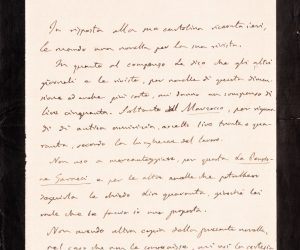 In risposta alla sua cartolina ricevuta ieri,
le mando una novella per la sua rivista.
In quanto al compenso Le dico che gli altri
giornali e le riviste, per novelle di questa dimen-
sione ed anche più corte, mi danno un compenso di
lire cinquanta. Soltanto del Marzocco, per ragione
di di antica amicizia, accetto lire trenta o qua-
ranta, secondo la lunghezza del lavoro.
Non uso a mercanteggiare, per questa La
e per le altre novelle che potrebbero
seguirla le chiedo lire quaranta, giacché lei
vuole che io faccia una proposta.
Non avendo altra copia della presente novella,
nel caso che non le convenisse, mi usi la cortesia